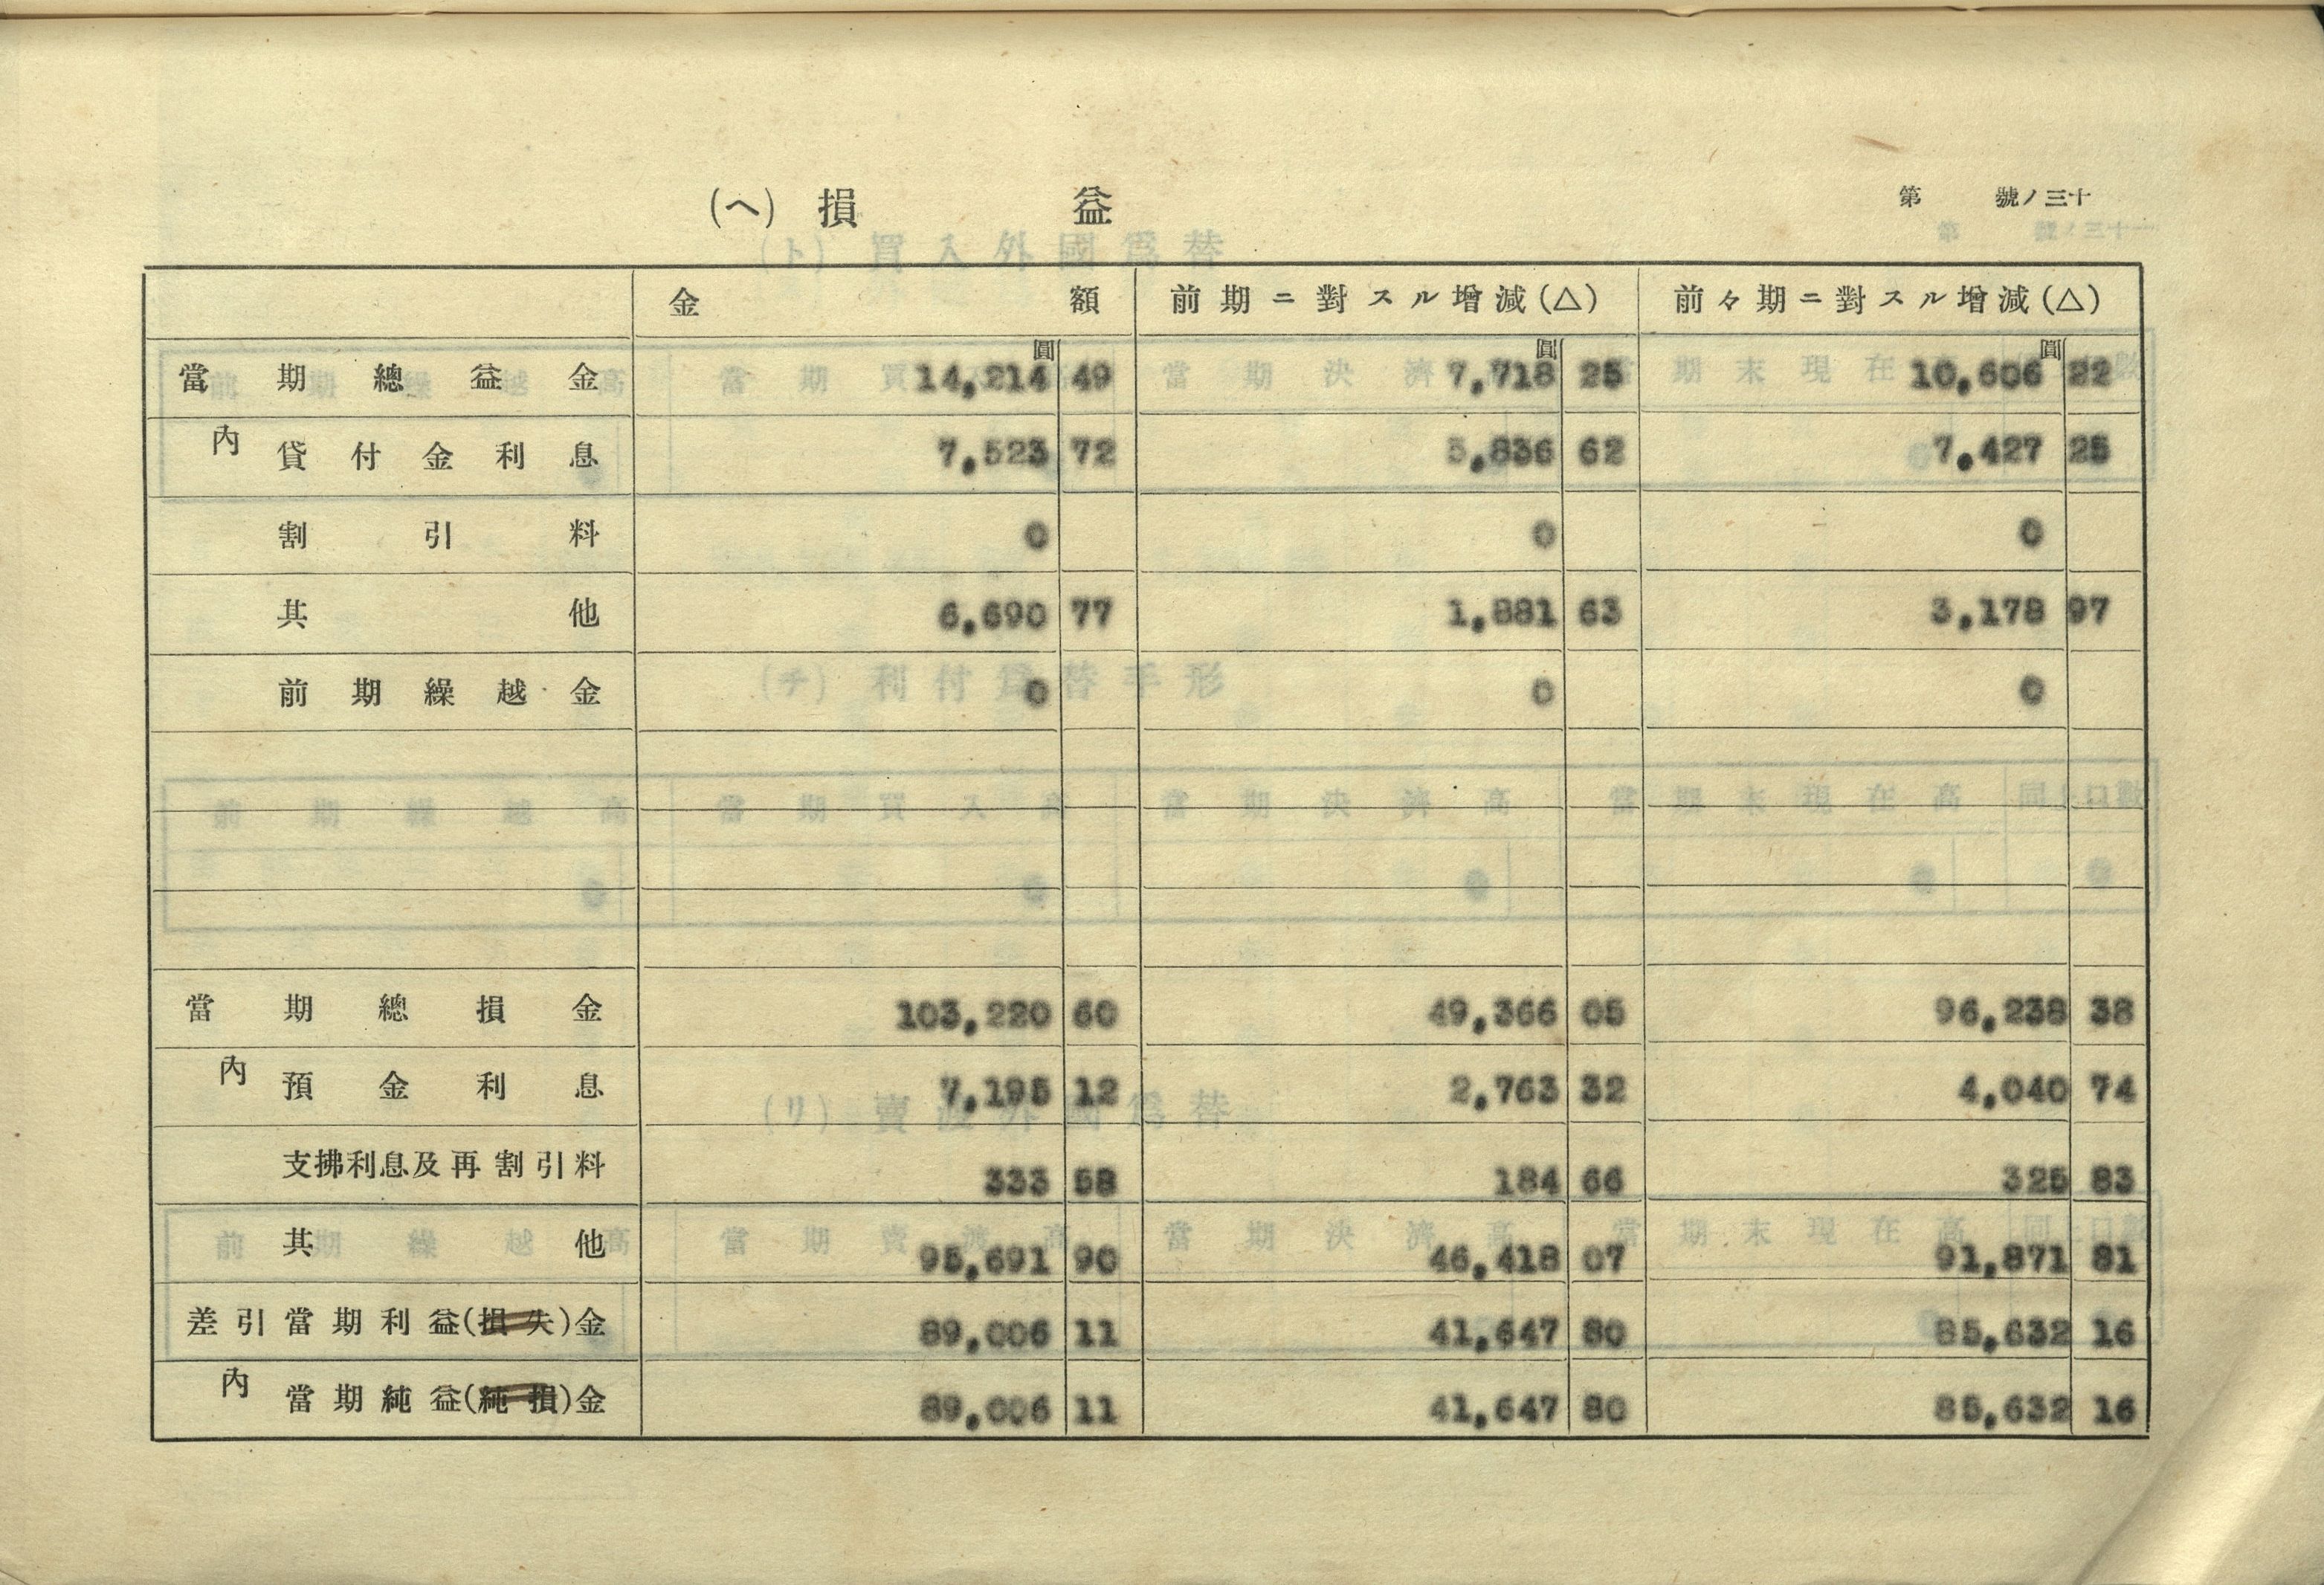 (ヘ) 損 益
第 號ノ三十
金 額 前期ニ對スル增減(△) 前々期ニ對スル增減(△)
圓 圓 圓
當期總益金 14,214 49 7,718 25 10,606 22
內 貸付金利息 7,523 72 5,836 62 7,427 25
割引料 0 0 0
其他 6,690 77 1,881 63 3,178 97
前期繰越金 0 0 0
當期總損金 103,220 60 49,366 05 96,238 38
內 預金利息 7,195 12 2,763 32 4,040 74
支拂利息及再割引料 333 58 184 66 325 83
其他 95,691 90 46,418 07 91,871 81
差引當期利益(損失)金 89,006 11 41,647 80 85,632 16
內 當期純益(純損)金 89,006 11 41,647 80 85,632 16